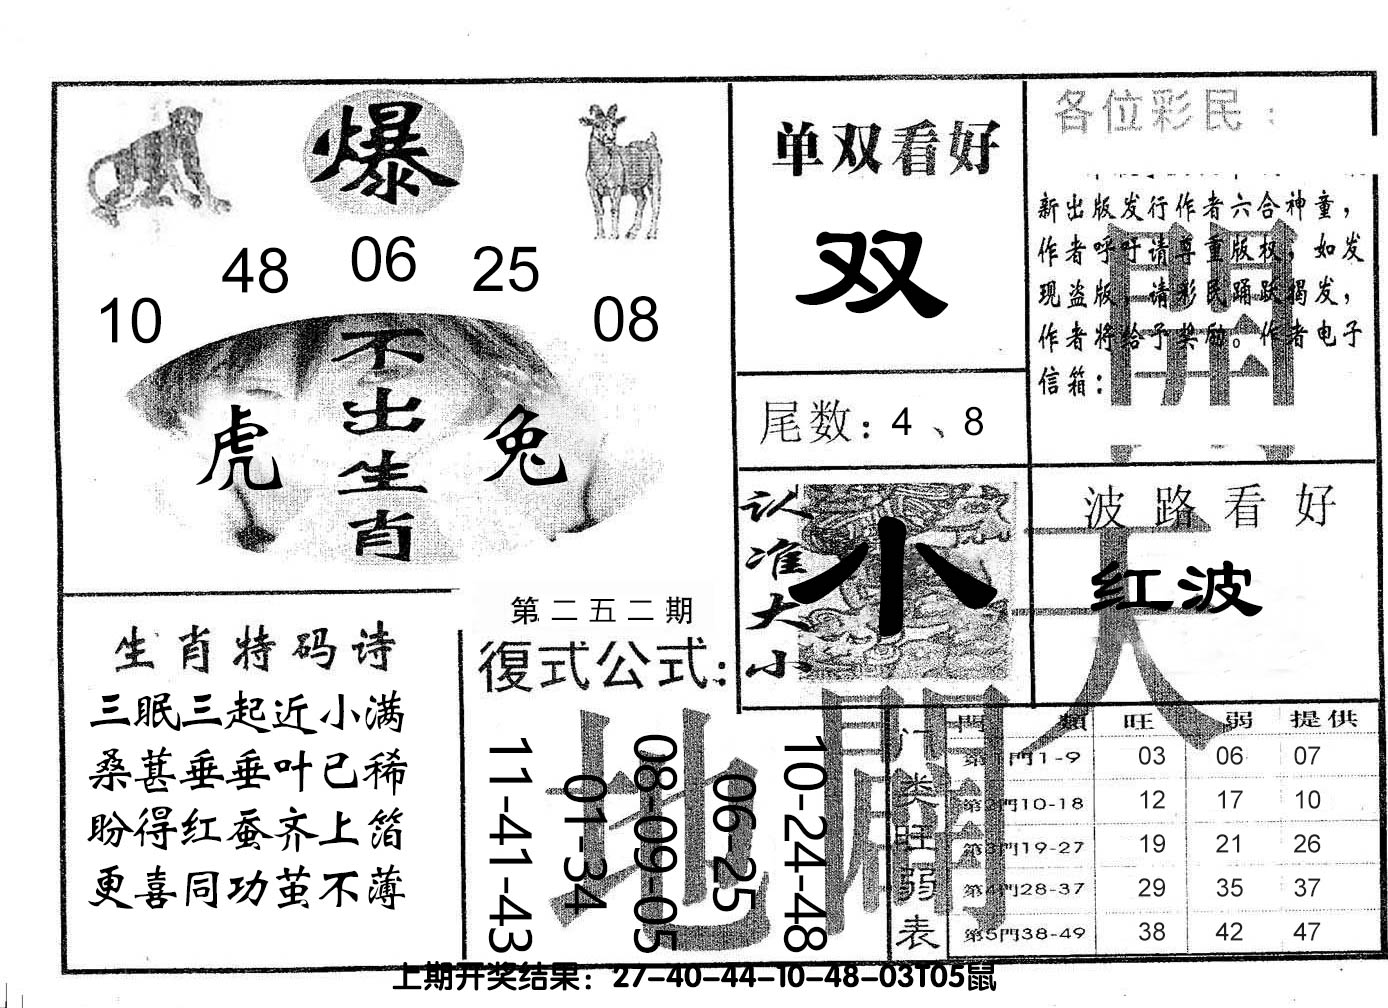 爆
10 48 06 25 08
不出生肖
虎 兔
单双看好
双
尾数：4、8
各位彩民：
新出版发行作者六合神童，
作者呼吁请尊重版权，如发
现盗版，请彩民踊跃揭发，
作者将给予奖励。作者电子
信箱：
開
认准大小
小
波路看好
红波
天
生肖特码诗
三眠三起近小满
桑葚垂垂叶已稀
盼得红蚕齐上箔
更喜同功茧不薄
第二五二期
復式公式：
11-41-43
01-34
08-09-05
06-25
10-24-48
地
門类旺弱表
門類 旺 弱 提供
第1門1-9 03 06 07
第2門10-18 12 17 10
第3門19-27 19 21 26
第4門28-37 29 35 37
第5門38-49 38 42 47
上期开奖结果：27-40-44-10-48-03T05鼠